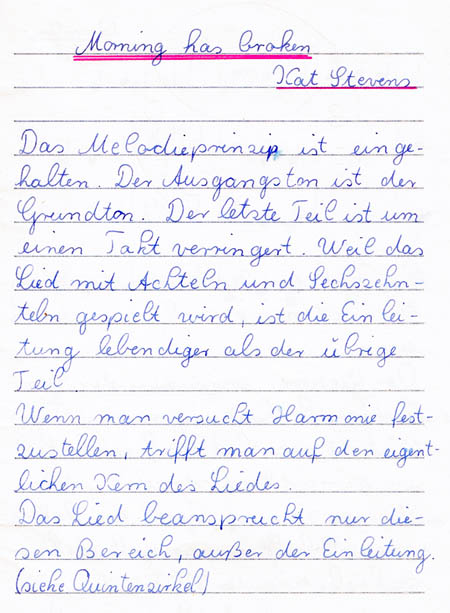 Morning has broken
Kat Stevens
Das Melodieprinzip ist einge-
halten. Der Ausgangston ist der
Grundton. Der letzte Teil ist um
einen Takt verringert. Weil das
Lied mit Achteln und Sechszehn-
teln gespielt wird, ist die Einlei-
tung lebendiger als der übrige
Teil.
Wenn man versucht Harmonie fest-
zustellen, trifft man auf den eigent-
lichen Kern des Liedes.
Das Lied beanspreicht nur die-
sen Bereich, außer der Einleitung.
(siehe Quintenzirkel)